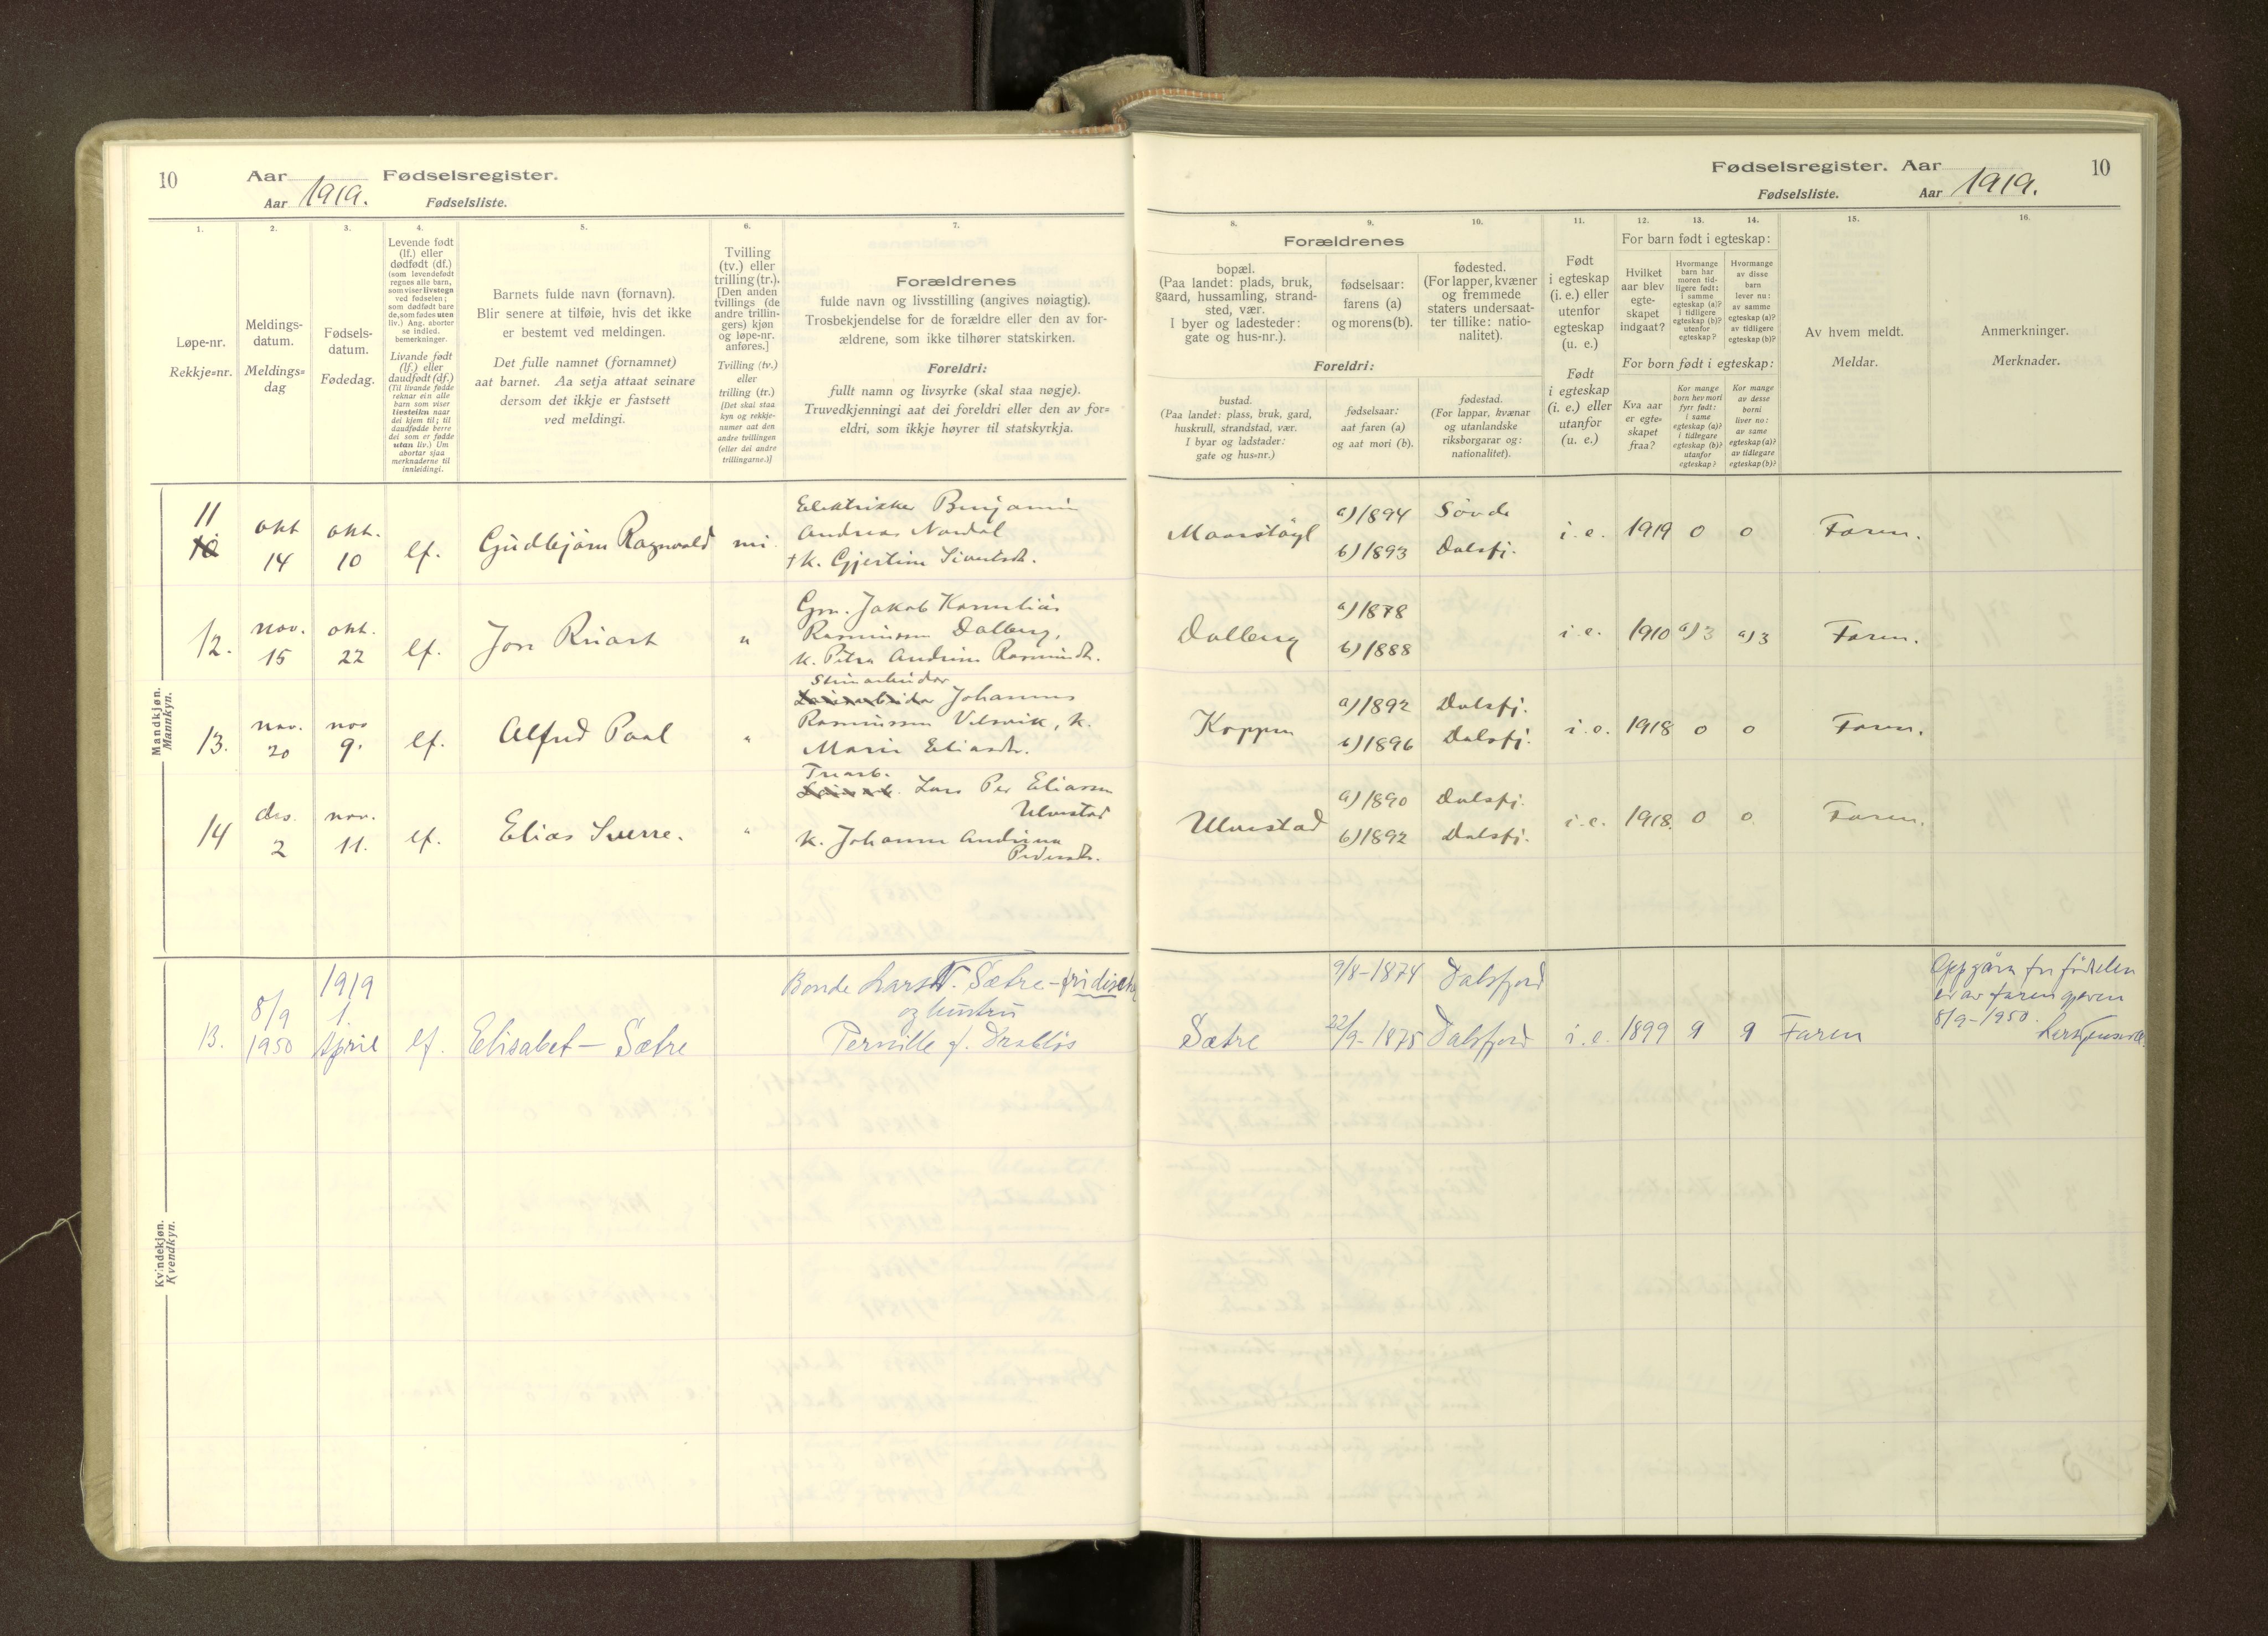 10 Aar Fødselsregister.
Aar 1919. Fødselsliste.
1.
2.
3.
4.
5.
6.
7.
Løpe-nr.
Rekkje=nr.
Meldings-
datum.
Meldings=
dag
Fødsels-
datum.
Fødedag.
Levende født
(lf.) eller
dødfødt (df.)
(som levendefødt
regnes alle barn,
som viser livstegn
ved fødselen;
som dødfødt bare
de, som fødes uten
liv.) Ang. aborter
se indled.
bemerkninger.
Livande født
(lf.) eller
daudfødt (df.)
(Til livande fødde
reknar ein alle
barn som viser
livsteikn naar
dei kjem til; til
daudfødde berre
dei som er fødde
utan liv.) Um
abortar sjaa
merknaderne til
innleidingi.
Barnets fulde navn (fornavn).
Blir senere at tilføie, hvis det ikke
er bestemt ved meldingen.
Det fulle namnet (fornamnet)
aat barnet. Aa setja attaat seinare
dersom det ikkje er fastsett
ved meldingi.
Tvilling
(tv.) eller
trilling (tr.).
[Den anden
tvillings (de
andre trillin-
gers) kjøn
og løpe-nr.
anføres.]
Tvilling (tv.)
eller
trilling (tr.)
[Det skal staa
kyn og rekkje-
numer aat den
andre tvillingen
(eller dei andre
trillingarne.)]
Forældrenes
fulde navn og livsstilling (angives nøiagtig).
Trosbekjendelse for de forældre eller den av for-
ældrene, som ikke tilhører statskirken.
Foreldri:
fullt namn og livsyrke (skal staa nøgje).
Truvedkjenningi aat dei foreldri eller den av for=
eldri, som ikkje høyrer til statskyrkja.
Mandkjøn.
Mannkyn.
11
10
okt
14
okt.
10
lf.
Gudbjørn Ragnvald
nei
Elektriker Benjamin
Andreas Nordal
+ k. Gjertine Sivertsdt.
12.
nov.
15
okt.
22
lf.
Jon Knart
"
Gm. Jakob Kornelius
Rasmussen Dalberg,
k. Petra Andrine Rasmusdt.
13.
nov.
20
nov
9.
lf.
Alfred Paal
"
Stenarbeider
Johannes
Rasmussen Velsvik, k.
Marie Eliasdt.
14
des.
2
nov.
11.
lf.
Elias Sverre.
"
Trearb.
Lars Per Eliassen
Ulvestad
k. Johanne Andrina
Pedersdt.
Kvindekjøn.
Kvendkyn.
13.
8/9
1950
1919
1.
April
lf.
Elisabet – Sætre
Bonde Lars N. Sætre –
og hustru
Pernille f. Drabløs
Fødselsregister. Aar 10
Fødselsliste. Aar 1919.
8.
9.
10.
11.
12.
13.
14.
15.
16.
Forældrenes
bopæl.
(Paa landet: plads, bruk,
gaard, hussamling, strand-
sted, vær.
I byer og ladesteder:
gate og hus-nr.).
fødselsaar:
farens (a)
og morens (b).
fødested.
(For lapper, kvæner
og fremmede
staters undersaat-
ter tillike: natio-
nalitet).
Foreldri:
bustad.
(Paa landet: plass, bruk, gard,
huskrull, strandstad, vær.
I byar og ladstader:
gate og hus=nr.)
fødselsaar:
aat faren (a)
og aat mori (b).
fødestad.
(For lappar, kvænar
og utanlandske
riksborgarar og:
nationalitet).
Født
i egteskap
(i. e.) eller
utenfor
egteskap
(u. e.)
Født
i egteskap
(i. e.) eller
utanfor
(u. e.)
For barn født i egteskap:
Hvilket
aar blev
egte-
skapet
indgaat?
Hvormange
barn har
moren tid-
ligere født:
i samme
egteskap (a)?
i tidligere
egteskap (b)?
utenfor
egteskap?
Hvormange
av disse
barn
lever nu:
av samme
egteskap (a)?
av tidligere
egteskap (b)?
For born født i egteskap:
Kva aar
er egte-
skapet
fraa?
Kor mange
born hev mori
fyrr født:
i same
egteskap (a)?
i tidlegare
egteskap (b)?
utanfor
egteskap?
Kor mange
av desse
borni
liver no:
av same
egteskap (a)?
av tidlegare
egteskap (b)?
Av hvem meldt.
Meldar.
Anmerkninger.
Merknader.
Maarstøyl
a) 1894 Søvde
b) 1893 Dalsfj.
i. e. 1919 0 0 Faren.
Dalberg
a) 1878
b) 1888
i. e. 1910 a) 3 a) 3 Faren.
Koppen
a) 1892 Dalsfj.
b) 1896 Dalsfj.
i. e. 1918 0 0 Faren.
Ulvestad
a) 1890 Dalsfj.
b) 1892 Dalsfj.
i. e. 1918. 0 0 Faren.
Sætre
9/8-1874 Dalsfjord
22/9-1875 Dalsfjord
i. e. 1899 9 9 Faren
Oppgåva for fødselen
er av faren gjeven
8/9-1950.